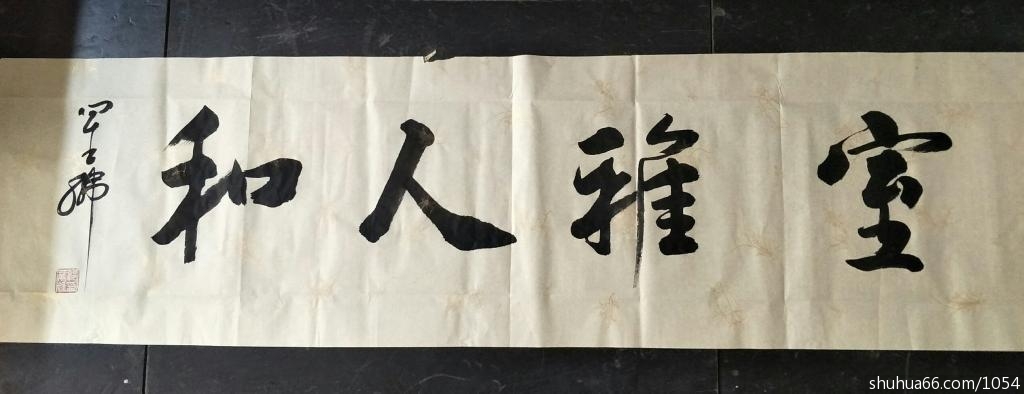 室雅人和
shuhua66.com/1054